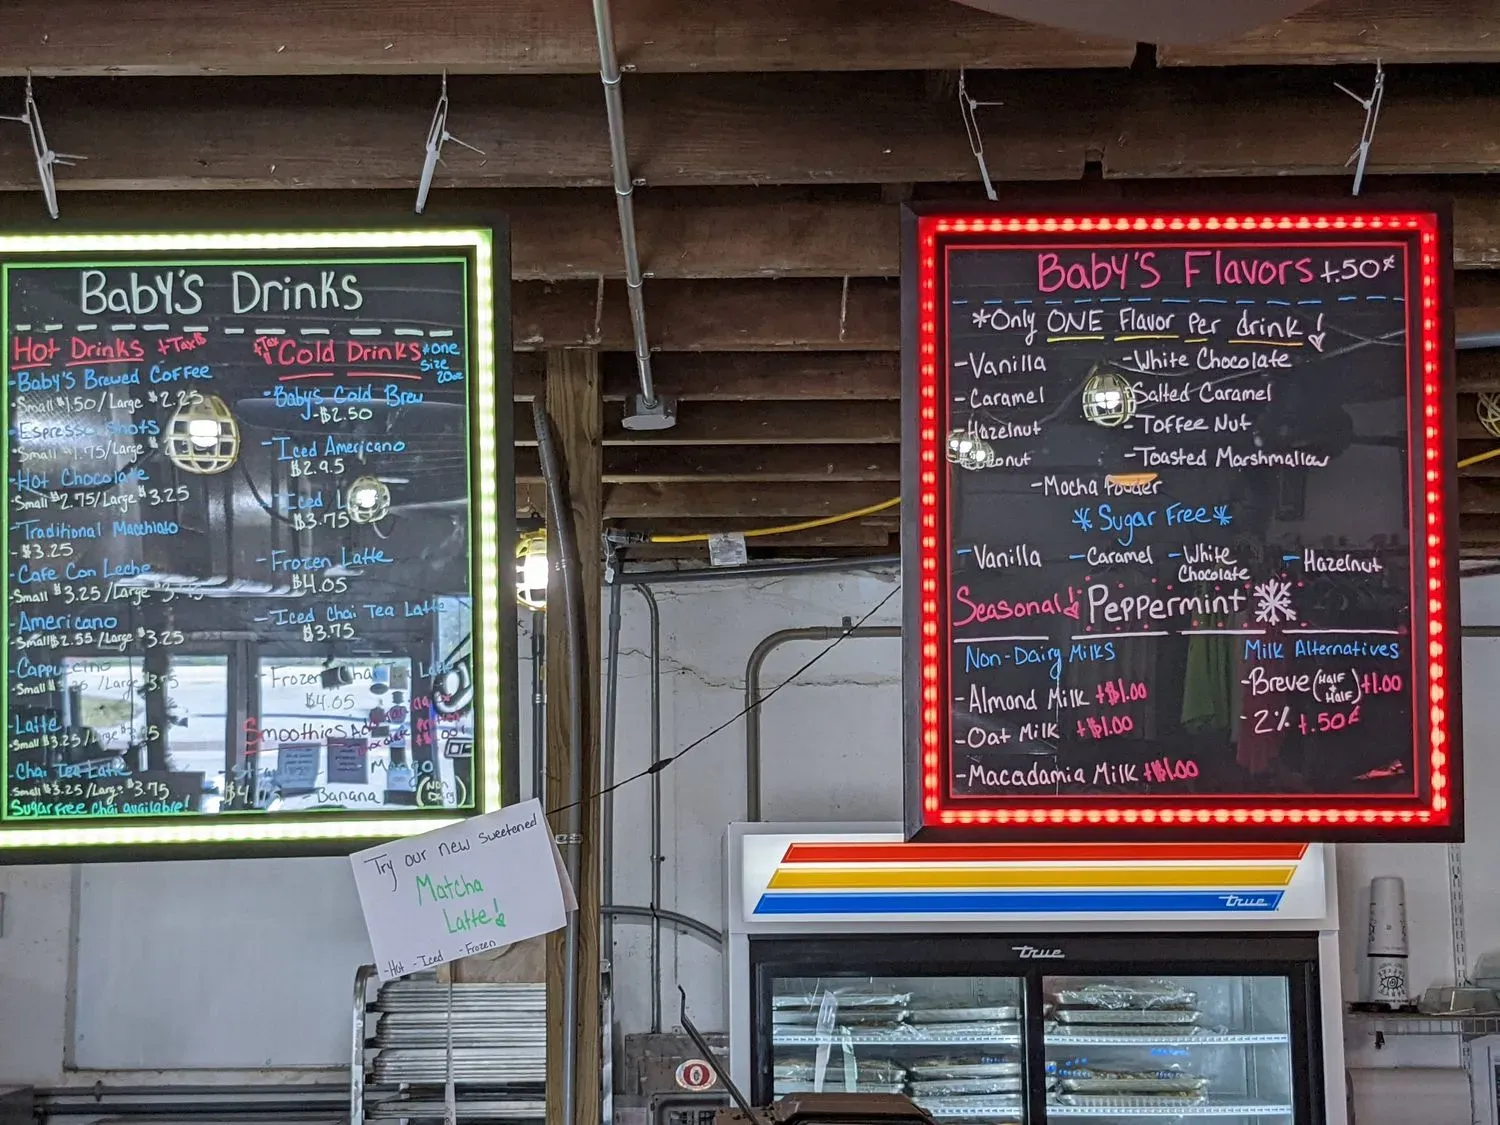 Baby's Drinks
Hot Drinks +Tax
-Baby's Brewed Coffee
•Small $1.50/Large $2.25
-Espresso Shots
•Small $1.75/Large
-Hot Chocolate
•Small $2.75/Large $3.25
-Traditional Macchiato
-$3.25
-Cafe Con Leche
-Small $3.25/Large
-Americano
•Small $2.55/Large $3.25
-Cappuccino
•Small /Large $3.75
-Latte
•Small $3.25/Large
-Chai Tea Latte
•Small $3.25/Large $3.75
Sugar free chai available!
+Tax Cold Drinks *one size 20oz
-Baby's Cold Brew
-$2.50
-Iced Americano
$2.95
-Iced
$3.75
-Frozen Latte
$4.05
-Iced Chai Tea Latte
$3.75
-Frozen Chai Tea Latte
$4.05
Smoothies
-Mango
-Banana
(Non Dairy)
Try our new sweetened
Matcha
Latte!
-Hot -Iced -Frozen
Baby's Flavors +.50¢
*Only ONE Flavor Per drink!
-Vanilla
-Caramel
-Hazelnut
-White Chocolate
-Salted Caramel
-Toffee Nut
-Toasted Marshmallow
-Mocha Powder
*Sugar Free*
-Vanilla -Caramel -White Chocolate -Hazelnut
Seasonal! Peppermint
Non-Dairy Milks
-Almond Milk +$1.00
-Oat Milk +$1.00
-Macadamia Milk +$1.00
Milk Alternatives
-Breve (Half + Half) +1.00
-2% +.50¢
true
true